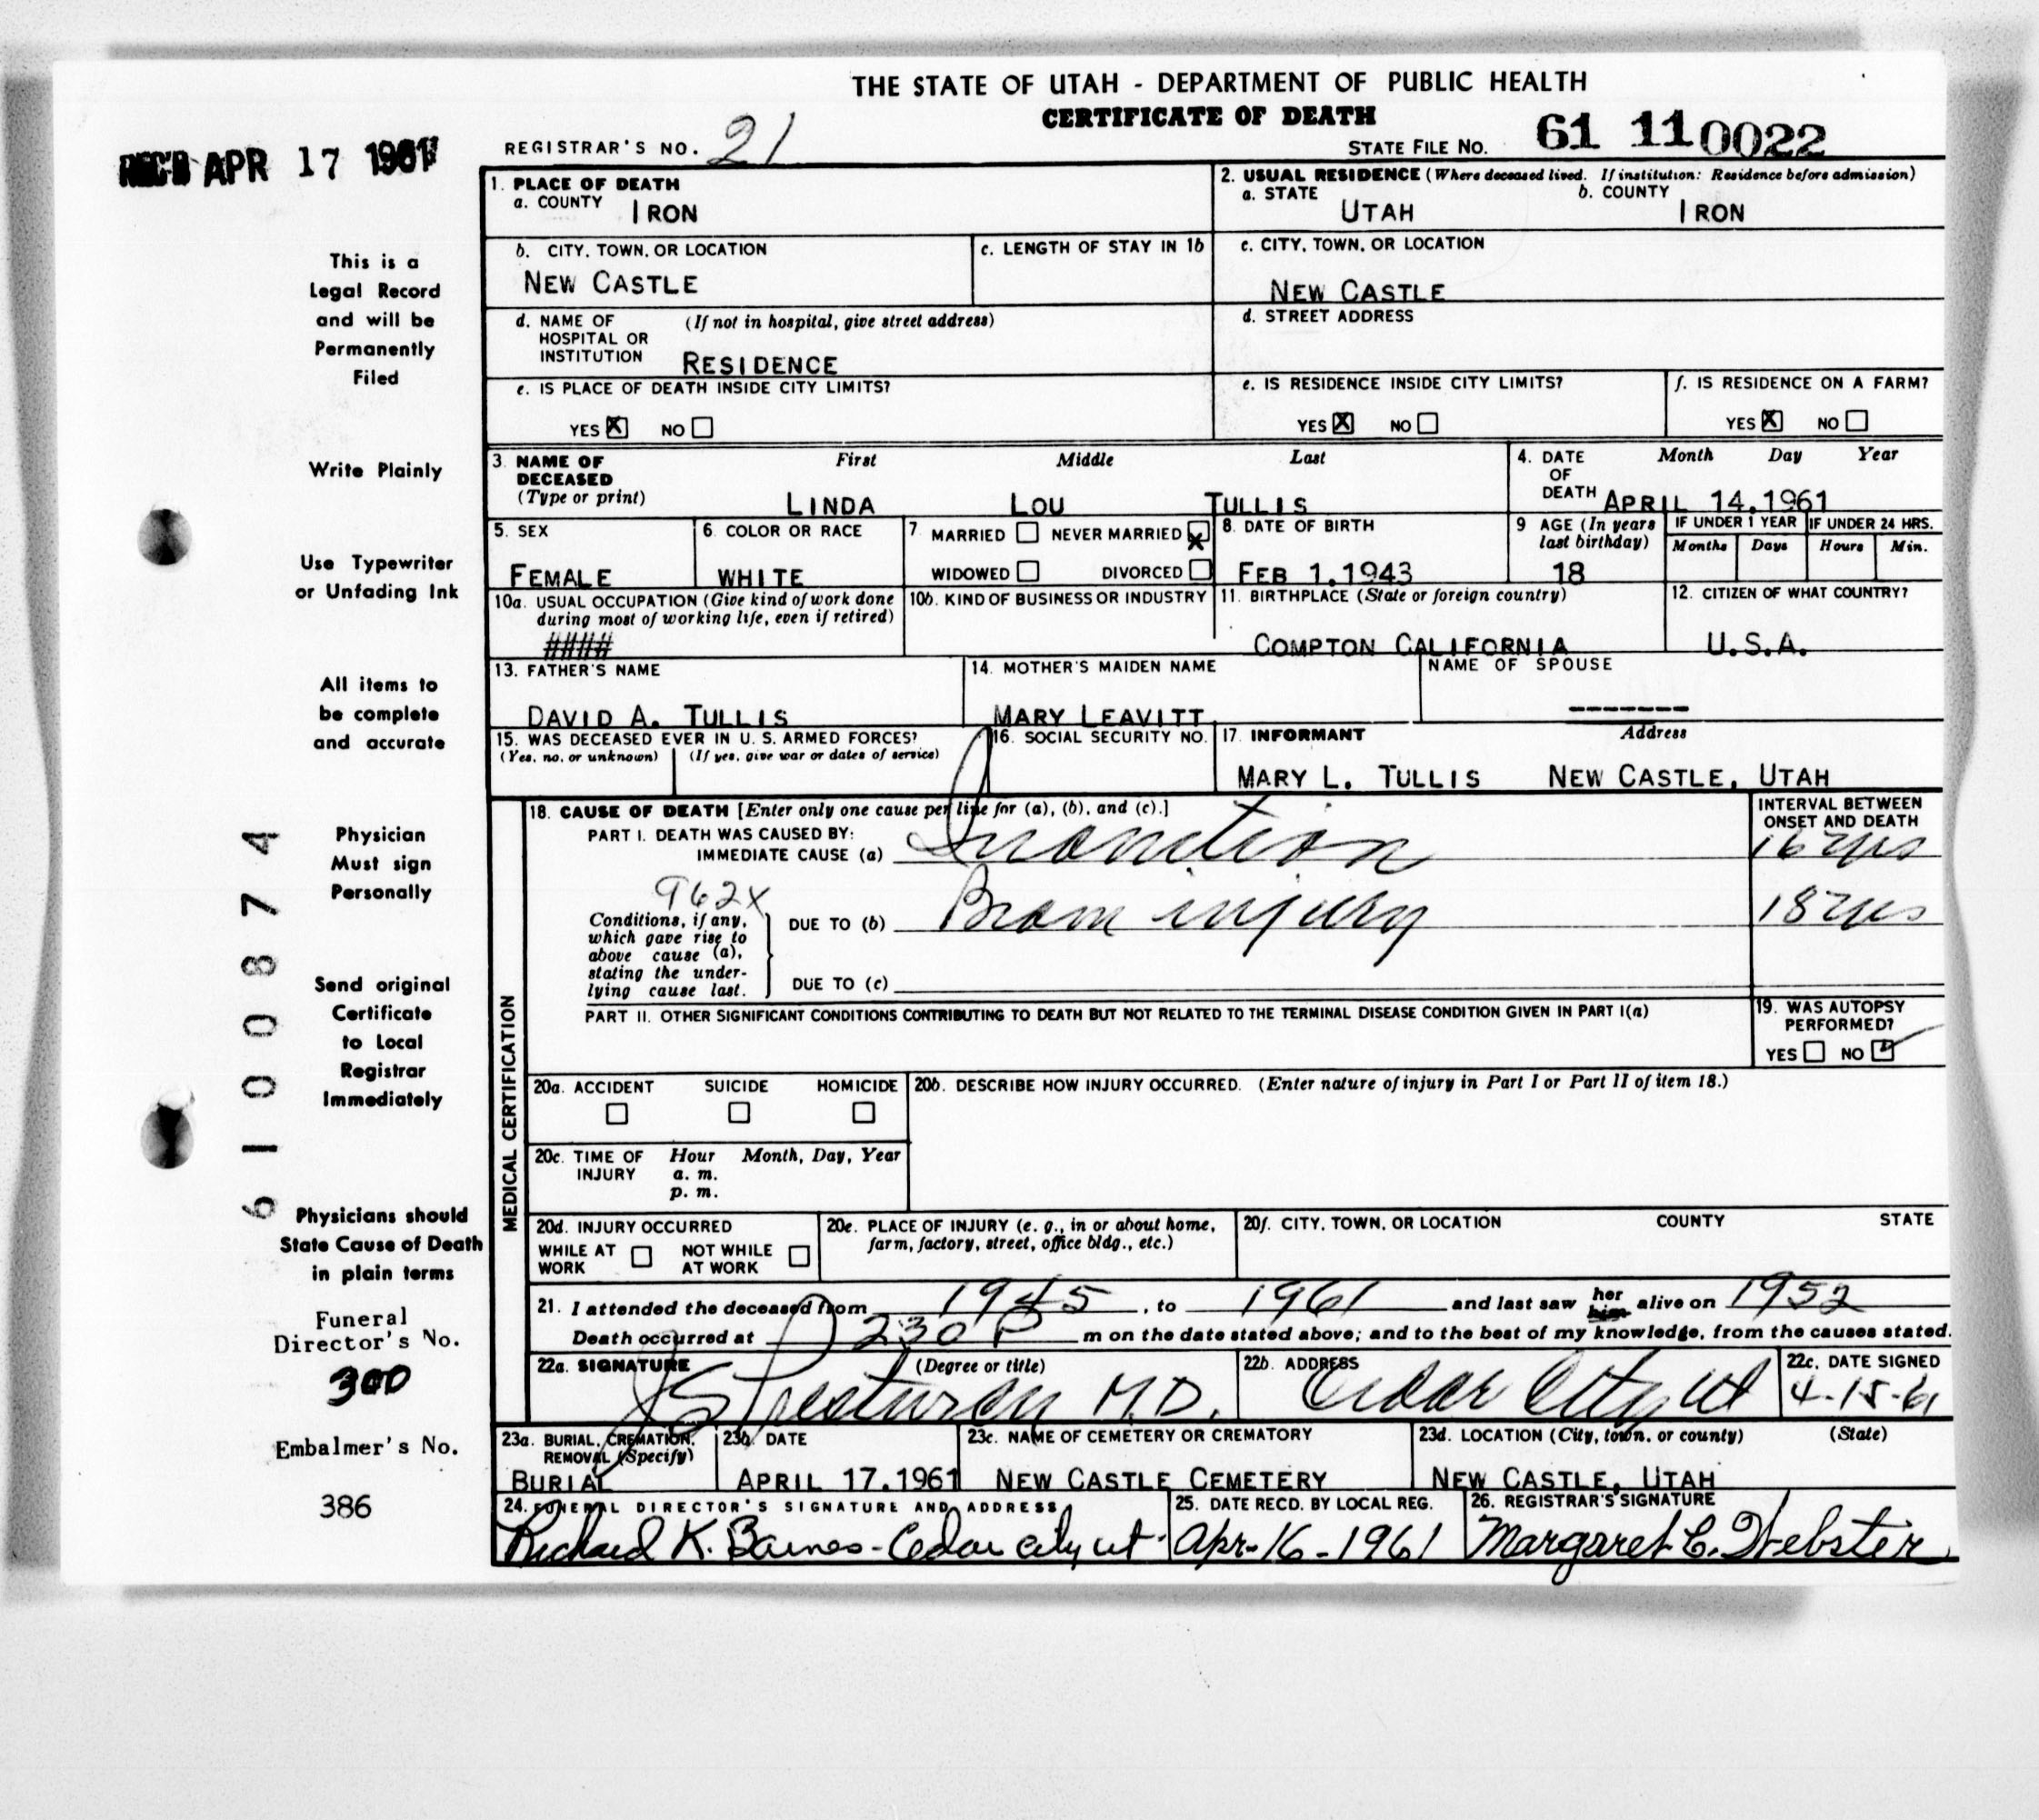 THE STATE OF UTAH - DEPARTMENT OF PUBLIC HEALTH
CERTIFICATE OF DEATH
REC'D APR 17 1961
REGISTRAR'S NO. 21
STATE FILE NO. 61 11 0022
This is a
Legal Record
and will be
Permanently
Filed
Write Plainly
Use Typewriter
or Unfading Ink
All items to
be complete
and accurate
Physician
Must sign
Personally
Send original
Certificate
to Local
Registrar
Immediately
Physicians should
State Cause of Death
in plain terms
Funeral
Director's No.
300
Embalmer's No.
386
6100874
1. PLACE OF DEATH
a. COUNTY IRON
2. USUAL RESIDENCE (Where deceased lived. If institution: Residence before admission)
a. STATE UTAH b. COUNTY IRON
b. CITY, TOWN, OR LOCATION
NEW CASTLE
c. LENGTH OF STAY IN 1b
c. CITY, TOWN, OR LOCATION
NEW CASTLE
d. NAME OF (If not in hospital, give street address)
HOSPITAL OR
INSTITUTION RESIDENCE
d. STREET ADDRESS
e. IS PLACE OF DEATH INSIDE CITY LIMITS?
YES X NO
e. IS RESIDENCE INSIDE CITY LIMITS?
YES X NO
f. IS RESIDENCE ON A FARM?
YES X NO
3. NAME OF First Middle Last
DECEASED
(Type or print) LINDA LOU TULLIS
4. DATE Month Day Year
OF
DEATH APRIL 14,1961
5. SEX
FEMALE
6. COLOR OR RACE
WHITE
7. MARRIED NEVER MARRIED X
WIDOWED DIVORCED
8. DATE OF BIRTH
FEB 1,1943
9 AGE (In years
last birthday)
18
IF UNDER 1 YEAR
Months Days
IF UNDER 24 HRS.
Hours Min.
10a. USUAL OCCUPATION (Give kind of work done
during most of working life, even if retired)
####
10b. KIND OF BUSINESS OR INDUSTRY
11. BIRTHPLACE (State or foreign country)
COMPTON CALIFORNIA
12. CITIZEN OF WHAT COUNTRY?
U.S.A.
13. FATHER'S NAME
DAVID A. TULLIS
14. MOTHER'S MAIDEN NAME
MARY LEAVITT
NAME OF SPOUSE
-------
15. WAS DECEASED EVER IN U. S. ARMED FORCES?
(Yes, no, or unknown) (If yes, give war or dates of service)
16. SOCIAL SECURITY NO.
17. INFORMANT Address
MARY L. TULLIS NEW CASTLE, UTAH
MEDICAL CERTIFICATION
18. CAUSE OF DEATH [Enter only one cause per line for (a), (b), and (c).]
PART I. DEATH WAS CAUSED BY:
IMMEDIATE CAUSE (a) Inanition
INTERVAL BETWEEN
ONSET AND DEATH
16 yrs
962X
Conditions, if any,
which gave rise to
above cause (a),
stating the under-
lying cause last.
DUE TO (b) Brain injury 18 yrs
DUE TO (c)
PART II. OTHER SIGNIFICANT CONDITIONS CONTRIBUTING TO DEATH BUT NOT RELATED TO THE TERMINAL DISEASE CONDITION GIVEN IN PART I(a)
19. WAS AUTOPSY
PERFORMED?
YES NO ✓
20a. ACCIDENT SUICIDE HOMICIDE
20b. DESCRIBE HOW INJURY OCCURRED. (Enter nature of injury in Part I or Part II of item 18.)
20c. TIME OF Hour Month, Day, Year
INJURY a. m.
p. m.
20d. INJURY OCCURRED
WHILE AT NOT WHILE
WORK AT WORK
20e. PLACE OF INJURY (e. g., in or about home,
farm, factory, street, office bldg., etc.)
20f. CITY, TOWN, OR LOCATION COUNTY STATE
21. I attended the deceased from 1945, to 1961 and last saw her him alive on 1952
Death occurred at 230 P m on the date stated above; and to the best of my knowledge, from the causes stated.
22a. SIGNATURE (Degree or title)
M.D.
22b. ADDRESS
Cedar City ut
22c. DATE SIGNED
4-15-61
23a. BURIAL, CREMATION,
REMOVAL (Specify)
BURIAL
23b. DATE
APRIL 17,1961
23c. NAME OF CEMETERY OR CREMATORY
NEW CASTLE CEMETERY
23d. LOCATION (City, town, or county) (State)
NEW CASTLE, UTAH
24. FUNERAL DIRECTOR'S SIGNATURE AND ADDRESS
Richard K. Barnes - Cedar city ut
25. DATE RECD. BY LOCAL REG.
Apr-16-1961
26. REGISTRAR'S SIGNATURE
Margaret C. Webster